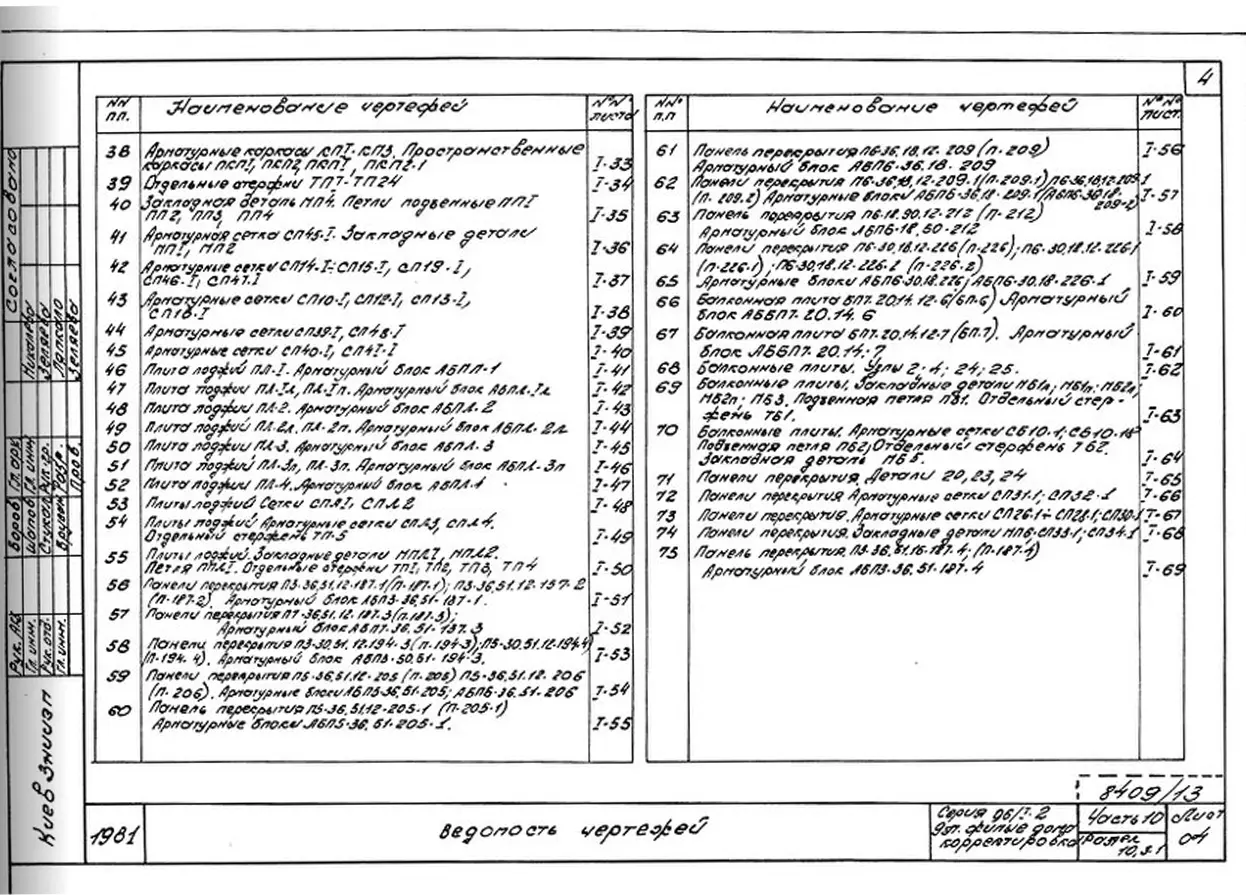 4
NN пп.
Наименование чертежей
№№ листа
38 Арматурные каркасы КП1-КП3. Пространственные
каркасы ПКП1, ПКП2, ПКП1, ПКП2-1 I-33
39 Отдельные стержни ТП7-ТП24 I-34
40 Закладная деталь МП4. Петли подъемные ПП1
ПП2, ПП3, ПП4 I-35
41 Арматурная сетка СП45-I. Закладные детали
МП1, МП2 I-36
42 Арматурные сетки СП14-I; СП15-I, СП19-I,
СП46-I, СП47-I I-37
43 Арматурные сетки СП10-I, СП12-I, СП13-I,
СП18-I I-38
44 Арматурные сетки СП39-I, СП48-I I-39
45 Арматурные сетки СП40-I, СП41-I I-40
46 Плита лоджии ПЛ-1. Арматурный блок АБПЛ-1 I-41
47 Плита лоджии ПЛ-1л, ПЛ-1п. Арматурный блок АБПЛ-1л I-42
48 Плита лоджии ПЛ-2. Арматурный блок АБПЛ-2 I-43
49 Плита лоджии ПЛ-2л, ПЛ-2п. Арматурный блок АБПЛ-2л I-44
50 Плита лоджии ПЛ-3. Арматурный блок АБПЛ-3 I-45
51 Плита лоджии ПЛ-3л, ПЛ-3п. Арматурный блок АБПЛ-3л I-46
52 Плита лоджии ПЛ-4. Арматурный блок АБПЛ-4 I-47
53 Плиты лоджий Сетки СПЛ1, СПЛ2 I-48
54 Плиты лоджий Арматурные сетки СПЛ3, СПЛ4.
Отдельный стержень ТП-5 I-49
55 Плиты лоджий. Закладные детали МПЛ1, МПЛ2.
Петля ППЛ1. Отдельные стержни ТП1, ТП2, ТП3, ТП4 I-50
56 Панели перекрытия П3-36.51.12-187-1 (П-187-1); П3-36.51.12-187-2
(П-187-2). Арматурный блок АБП3-36.51-187-1. I-51
57 Панели перекрытия П7-36.51.12.187.3 (п.187.3);
Арматурный блок АБП7-36.51-187.3 I-52
58 Панели перекрытия П3-30.51.12.194-3 (п-194-3); П5-30.51.12-194.4
(п-194.4). Арматурный блок АБП3-50.51-194-3. I-53
59 Панели перекрытия П5-36.51.12-205 (п-205) П5-36.51.12.206
(п-206). Арматурные блоки АБП5-36.51-205; АБП6-36.51-206 I-54
60 Панель перекрытия П5-36.51.12-205-1 (П-205-1)
Арматурные блоки АБП5-36.51-205-1. I-55
NN° п.п
Наименование чертежей
№№ лист.
61 Панель перекрытия П6-36.18.12.209 (п-209)
Арматурный блок АБП6-36.18-209 I-56
62 Панели перекрытия П6-36.18.12-209.1 (п-209.1) П6-36.18.12-209.1
(п.209.2) Арматурные блоки АБП6-36.18-209.1, (АБП6-36.18-
209-2) I-57
63 Панель перекрытия П6-18.90.12-212 (п-212)
Арматурный блок АБП6-18.50-212 I-58
64 Панели перекрытия П6-30.18.12-226 (п-226); П6-30.18.12-226/1
(п-226-1); П6-30.18.12-226-2 (п-226-2)
65 Арматурные блоки АБП6-30.18-226; АБП6-30.18-226-1 I-59
66 Балконная плита БП7.20.14.12-6 (БП-6) Арматурный
блок АББП7.20.14.6 I-60
67 Балконная плита БП7.20.14.12-7 (БП.7). Арматурный
блок АББП7.20.14-7 I-61
68 Балконные плиты. Узлы 2; 4; 24; 25. I-62
69 Балконные плиты. Закладные детали МБ1л; МБ1п; МБ2л;
МБ2п; МБ3. Подъемная петля ПБ1. Отдельный стер-
жень ТБ1. I-63
70 Балконные плиты. Арматурные сетки СБ10-1; СБ10-1а
Подъемная петля ПБ2; Отдельный стержень ТБ2.
Закладная деталь МБ5. I-64
71 Панели перекрытия. Детали 20, 23, 24 I-65
72 Панели перекрытия Арматурные сетки СП31-1; СП32-1 I-66
73 Панели перекрытия. Арматурные сетки СП26-1÷СП28-1; СП30-1 I-67
74 Панели перекрытия. Закладные детали МП6; СП33-1; СП34-1 I-68
75 Панель перекрытия П3-36.51.16-187-4; (П-187-4)
Арматурный блок АБП3-36.51-187-4 I-69
Согласовано
Николаева
Зеляева
Лапкало
Зеляева
Гл. арх.
Гл. инж.
Рук. гр.
Разр.
Пров.
Боров
Шапов
Стукал
Врулев
Рук. АКБ
Гл. инж.
Рук. отд.
Гл. инж.
Киев Знииэп
1981
Ведомость чертежей
8409/13
Серия 96/1-2
Эт. жилые дома
корректировка
Часть 10
Раздел
10.3-1
Лист
04